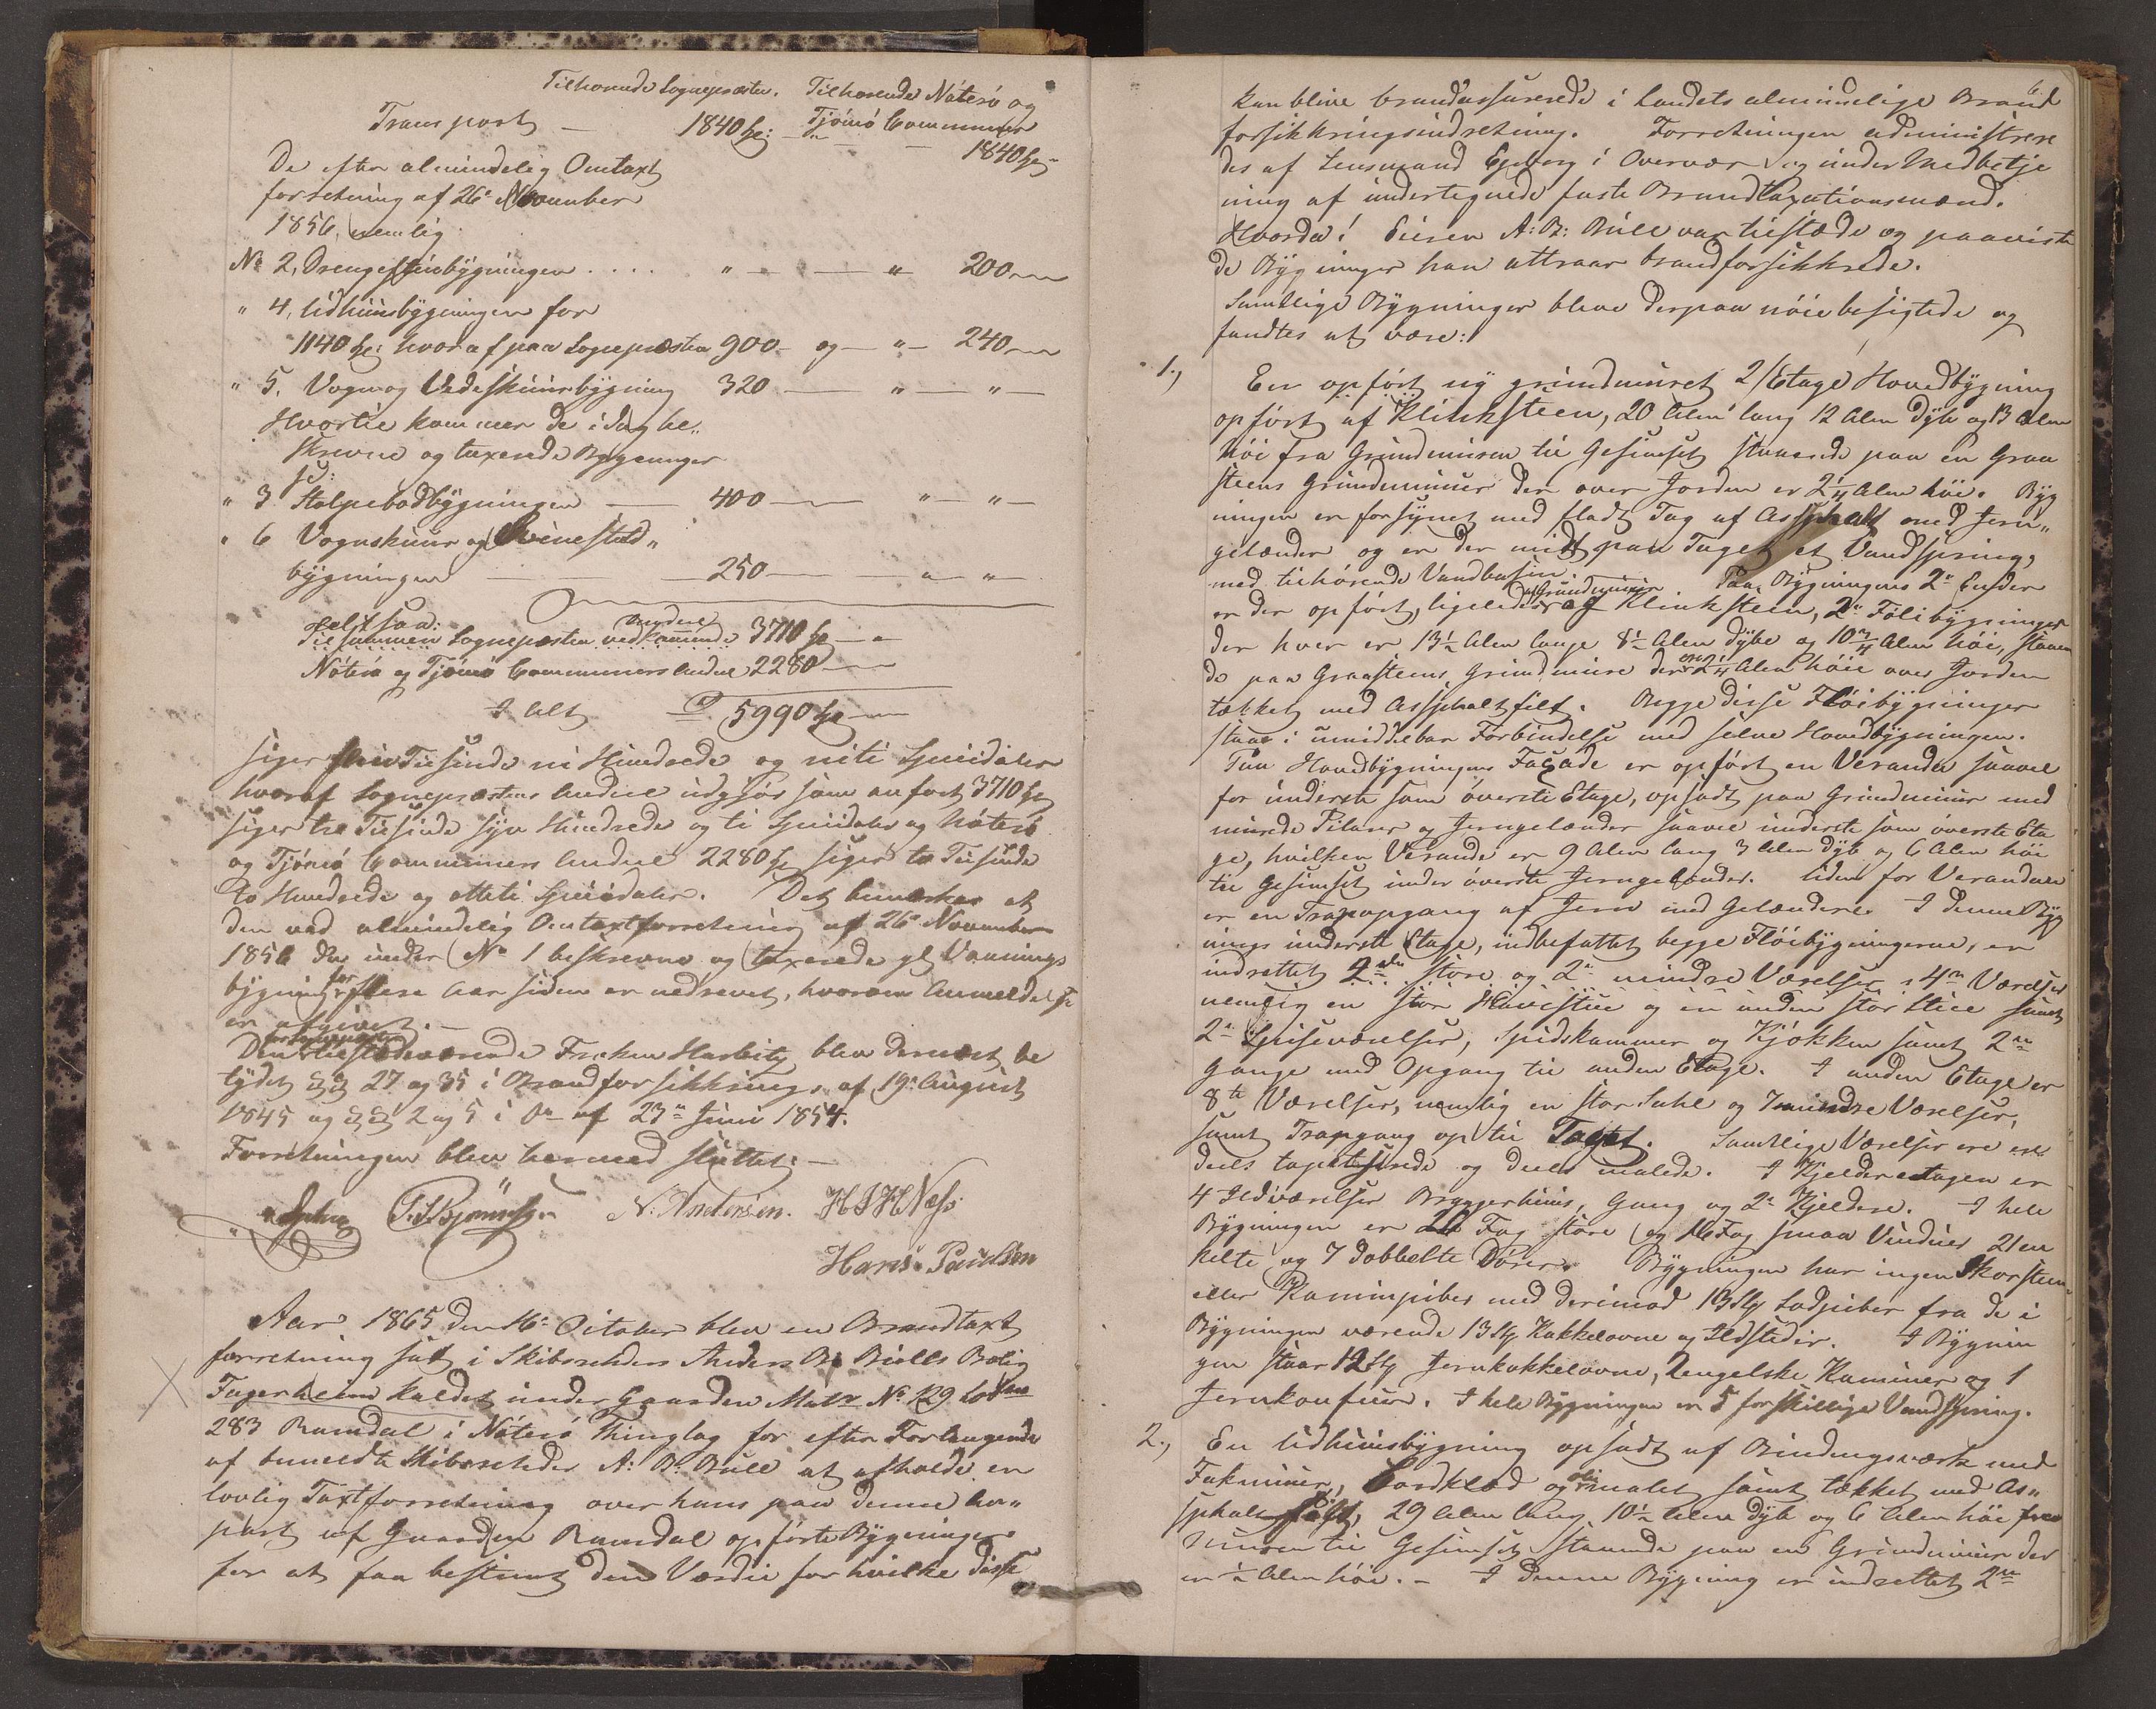 Tilhørende Sognepresten. Tilhørende Nøterø og
Transport — 1840 Sp: — Tjømø Communer
1840 Sp
De efter almindelig Omtaxt
forretning af 26de November
1856, nemlig
No 2, Drengestuebygningen . . . . " — — " 200 —
" 4, Udhuusbygningen for
1140 Sp: hvoraf paa Sognepresten 900 — og — " — 240 —
" 5. Vogn og Vedeskuursbygning 320 — " — " —
Hvortil kommer de i Dag be„
skrevne og taxerede Bygninger
sc:
" 3 Stolpebodbygningen — 400 — " — " —
" 6 Vognskuur og Svinestald„
bygningen — 250 — " — "
Altsaa:
Tilsammen Sognepresten vedkommende 3710 Sp — "
Nøterø og Tjømø Communers Andeel 2280 —
I Alt 5990 Sp —
siger fem Tusinde ni Hundrede og niti Speciedaler
hvoraf Sogneprestens Andeel udgjør som anført 3710 Sp
siger tre Tusinde syv Hundrede og ti Speciedaler og Nøterø
og Tjømø Communers Andeel 2280 Sp siger to Tusinde
to Hundrede og otteti Speciedaler. Det bemærkes at
den ved almindelig Omtaxtforretning af 26de November
1856 den under No 1 beskrevne og taxerede gl Vaanings
bygning for flere Aar siden er nedrevet, hvorom Anmeldelse
er afgivet. —
Den for Sognepresten tilstedeværende Frøken blev dernæst be
tydet §§ 27 og 35 i Brandforsikrings. af 19de August
1845 og §§ 2 og 5 i Do af 23de Juni 1854.
Forretningen blev hermed sluttet. —
N. Andersen. H I H Næss
Hans Paulsen
Aar 1865 den 16de October blev en Brandtaxt
forretning sat i Skibsrheder Anders B. Bulls Bolig
Fagerheim kaldet under Gaarden Matr No 129 Løbno
283 Ramdal i Nøterø Thinglag for efter Forlangende
af bemeldte Skibsrheder A: B: Bull at afholde en
lovlig Taxtforretning over hans paa denne An„
part af Gaarden Ramdal opførte Bygninger
for at faa bestemt den Værdie for hvilke disse
6
kan blive brandassurerede i Landets almindelige Brand
forsikkringsindretning. Forretningen administrere
des af Lensmand i Overvær og under Medbetje
ning af undertegnede faste Brandtaxationsmænd.
Hvorda! Eieren A: B: Bull var tilstæde og paaviste
de Bygninger han attraar brandforsikkrede.
Samtlige Bygninger bleve derpaa nøie besigtede og
fandtes at være:
1., En opført ny grundmuret 2 Etage Hovedbygning
opført af Klinksteen, 20 Alen lang 12 Alen dyb og 13 Alen
høi fra Grundmuren til Gesimset staaende paa en Graa
steens Grundmuur der over Jorden er 2 1/4 Alen høi. Byg
ningen er forsynet med fladt Tag af Assphalt med Jern„
gelænder og er der midt paa Taget et Vandspring,
med tilhørende Vandbasin. Paa Bygningens 2de Ender
er der opført, ligeledes grundmuur af Klinksteen, 2de Fløibygninger
der hver er 13 1/2 Alen lange 8 1/2 Alen dybe og 10 3/4 Alen høi, staaen
de paa Graasteens Grundmure der ere 2 1/4 Alen høie over Jorden
tækket med Assphaltfilt. Begge disse Fløibygninger
staar i umiddelbar Forbindelse med selve Hovedbygningen.
Paa Hovedbygningens Façade er opført en Veranda saavel
for underste som øverste Etage, opsadt paa Grundmuur med
murede Pilarer og Jerngelænder saavel underste som øverste Eta
ge, hvilken Veranda er 9 Alen lang 3 Alen dyb og 6 Alen høi
til Gesimset under øverste Jerngelænder. Uden for Verandaen
er en Trapopgang af Jern med Gelændere. I denne Byg
nings underste Etage, indbefattet begge Fløibygningerne, er
indrettet store og 2de mindre Værelser, 4re Værelser
nemlig en stor Havestue og en anden stor Stue samt
2de Spiseværelser, Spidskammer og Kjøkken samt 2de
Gange med Opgang til anden Etage. I anden Etage er
8te Værelser, nemlig en stor Sahl og 7 mindre Værelser,
samt Trapgang op til Taget. Samtlige Værelser ere en
deels tapetserede og deels malede. I Kjelderetagen er
4 Ildværelser Bryggerhuus, Gang og 2de Kjeldere. I hele
Bygningen er Fag store og 16 Fag smaa Vinduer 21 en
kelte og 7 dobbelte Dører. Bygningen har ingen Skorsteen
eller Kaminpiber med derimod 13 Stk Lodpiber fra de i
Bygningen værende 13 Stk Kakkelovne og Ildsteder. I Bygnin
gen staar 12 Stk Jernkakkelovne, 2 engelske Kaminer og 1
Jernkomfuur. I hele Bygningen er 5 forskjellige Vandspring.
2., En Udhuusbygning opsadt af Bindingsværk med
Fakmuur, Bordklæd og oliemalet samt tækket med As„
sphaltfilt, 29 Alen lang, 10 1/2 Alen dyb og 6 Alen høi fra
Muren til Gesimset, staaende paa en Grundmuur der
er 1/2 Alen høi. — I denne Bygning er indrettet 2de